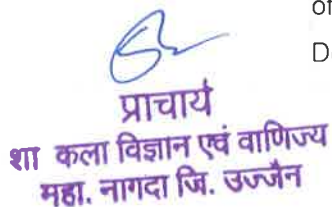 of
D
प्राचार्य
शा कला विज्ञान एवं वाणिज्य
महा. नागदा जि. उज्जैन